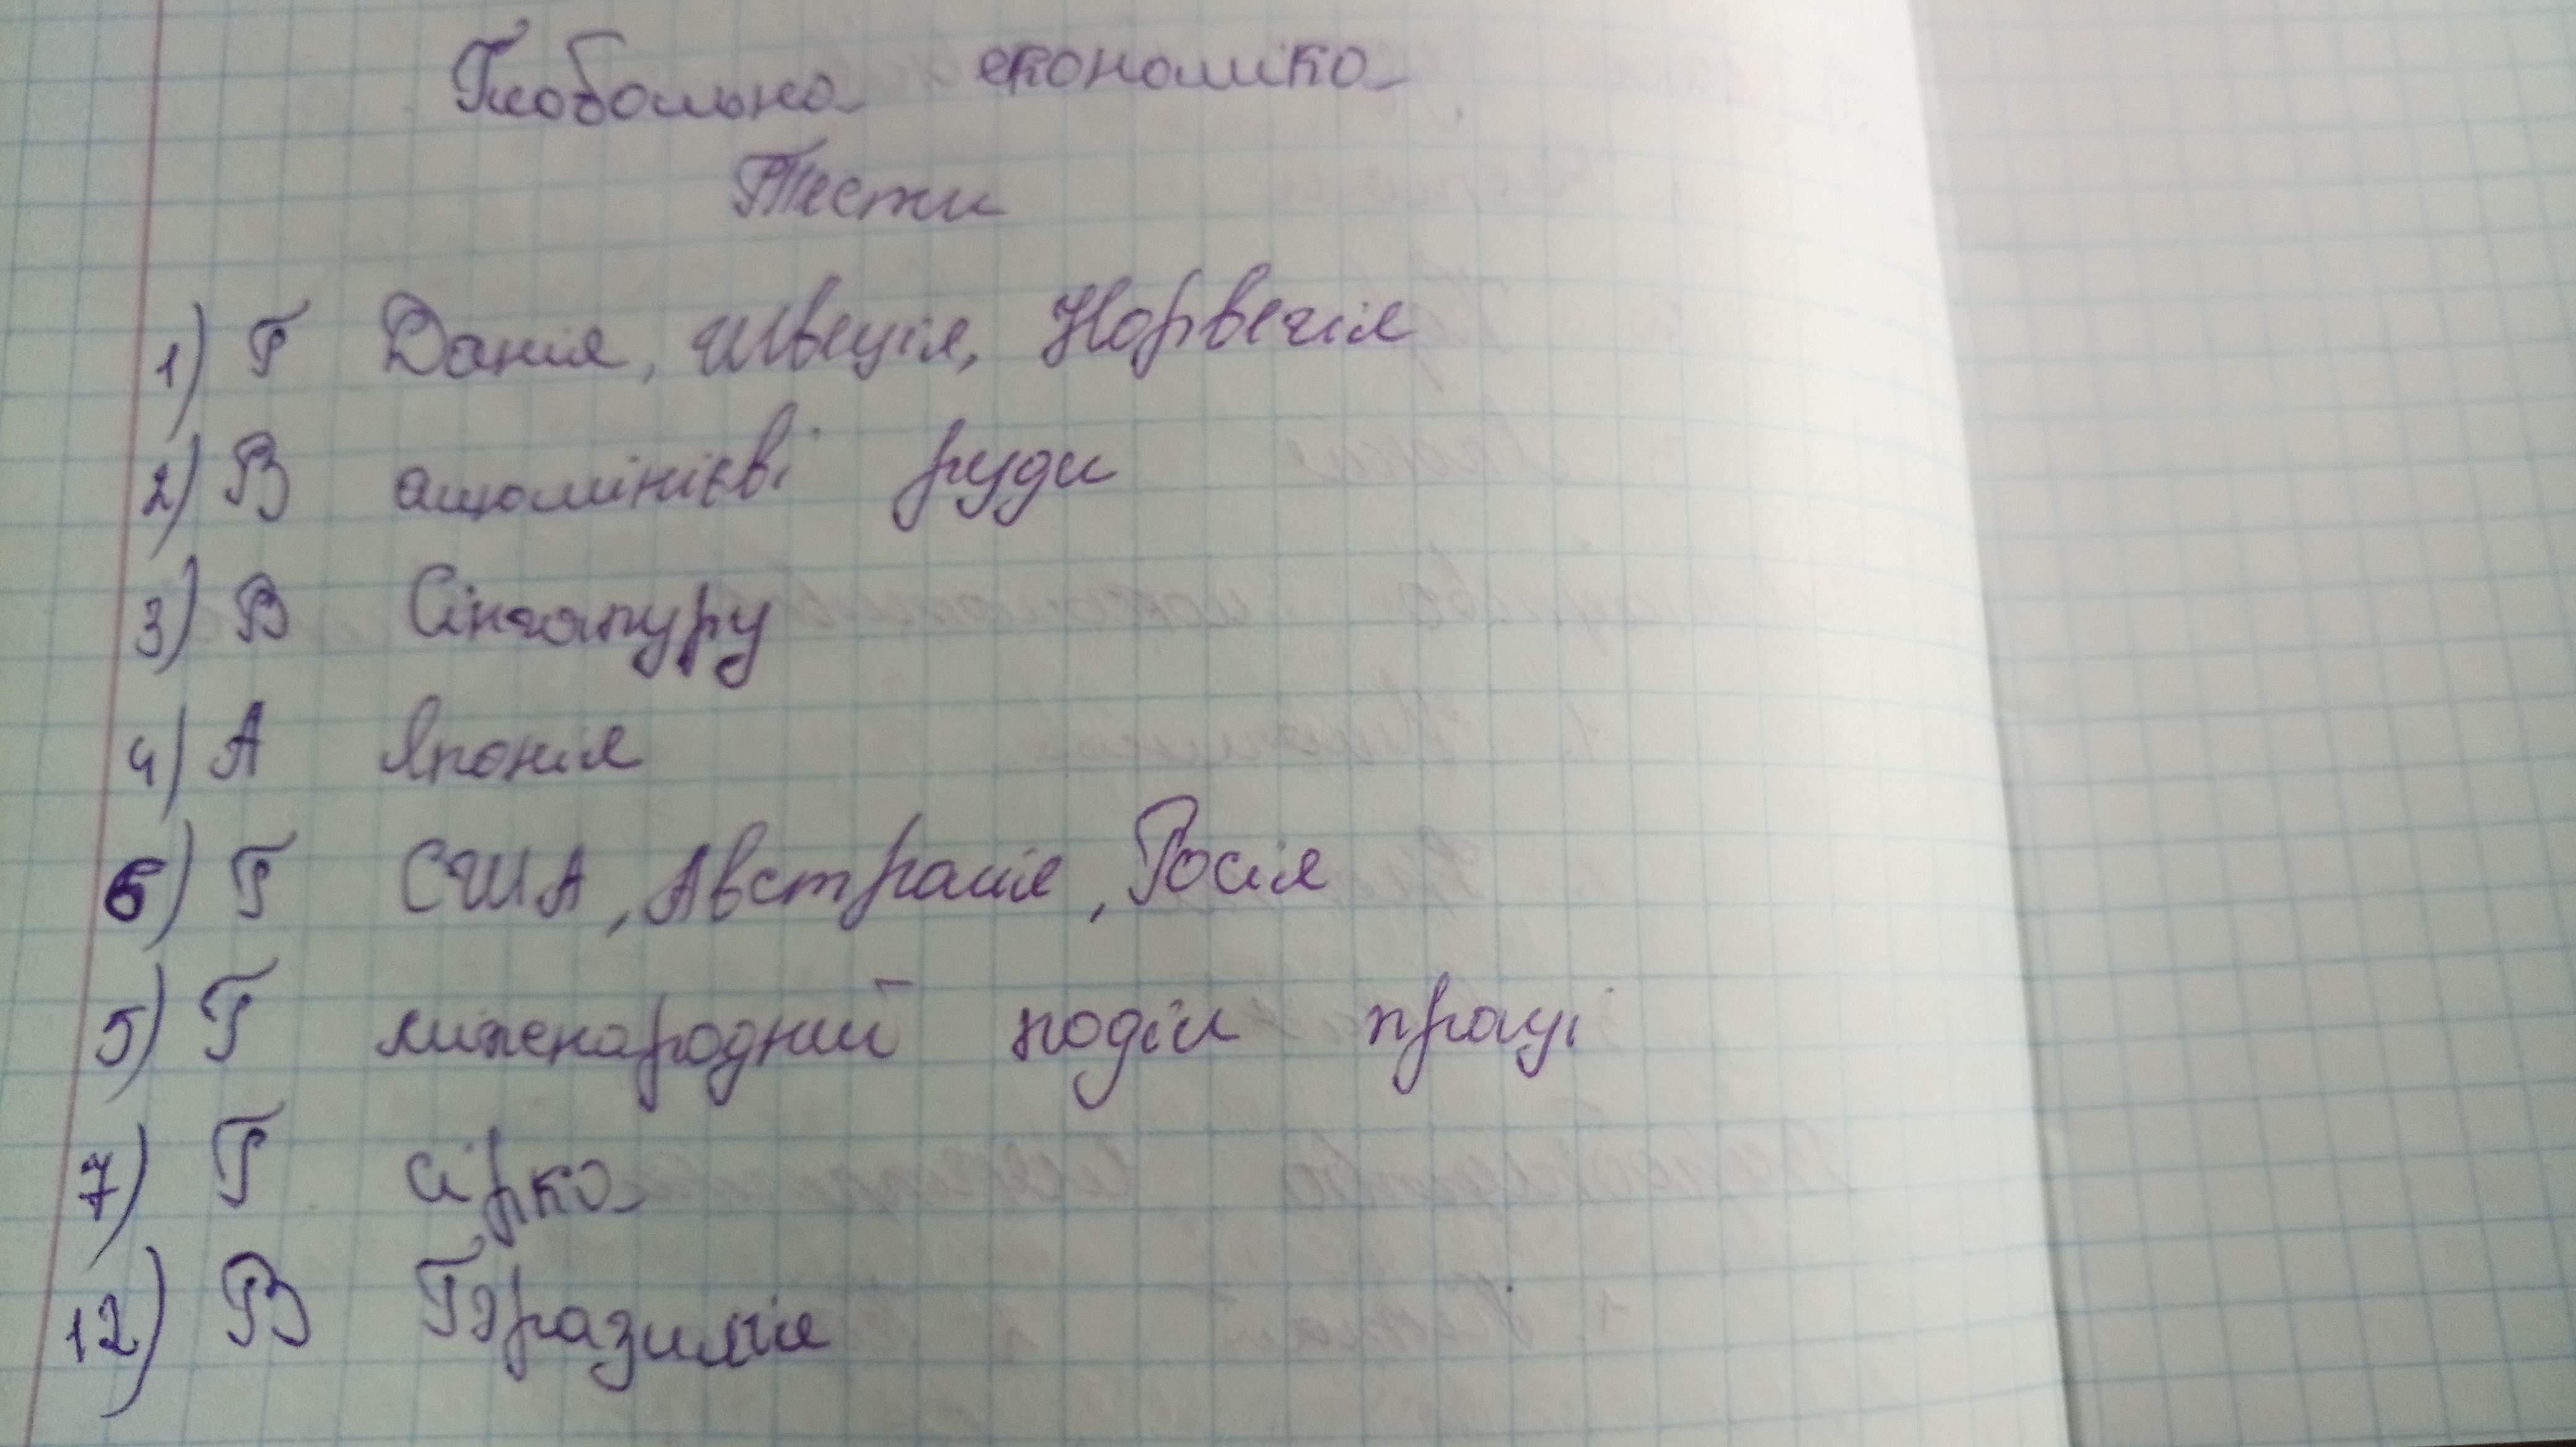 Глобальна економіка
Тести
1) Г Данія, Швеція, Норвегія
2) В алюмінієві руди
3) В Сінгапуру
4) А Японія
6) Г США, Австралія, Росія
5) Г міжнародний поділ праці
7) Г сірка
12) В Бразилія